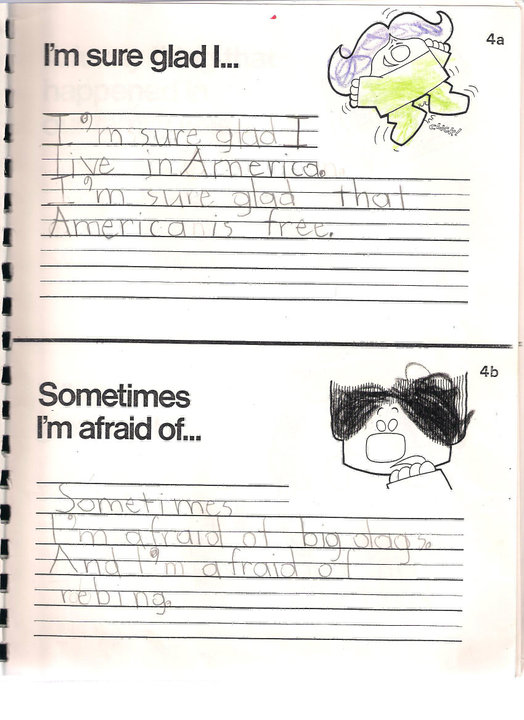 I'm sure glad I...
4a
CLICK!
I'm sure glad I
live in America.
I'm sure glad that
America is free.
Sometimes
I'm afraid of...
4b
Sometimes
I'm afraid of big dogs.
And I'm afraid of
rebing.